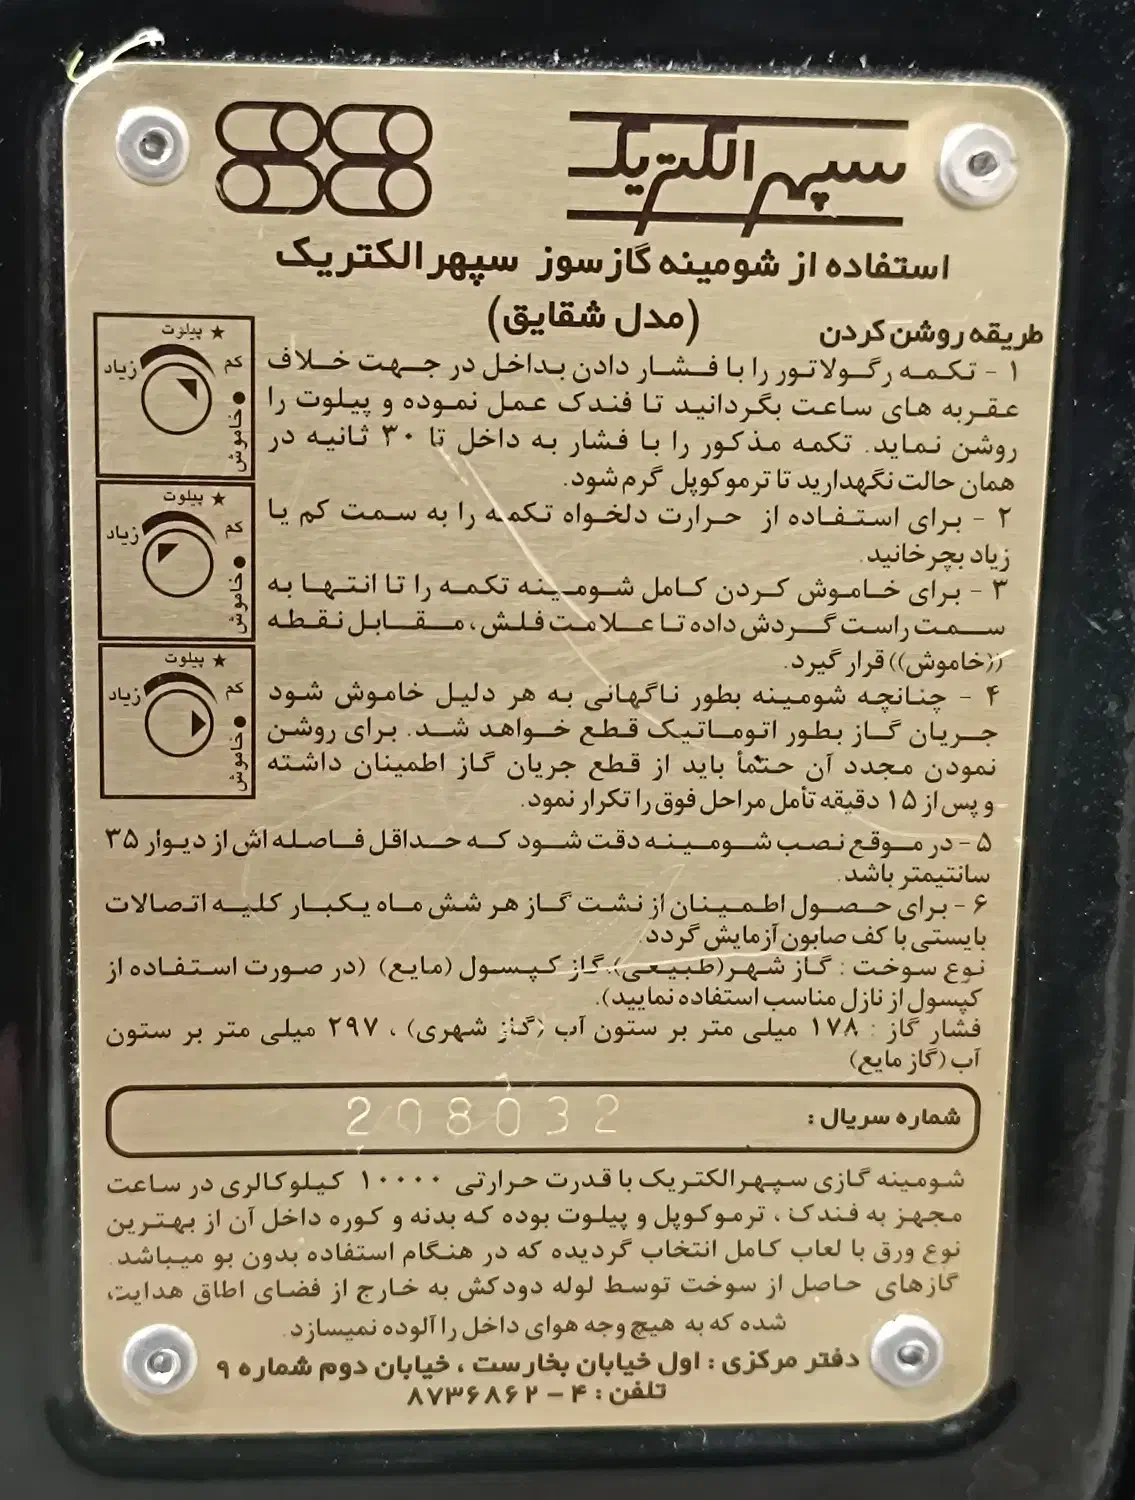 سپهر الکتریک
استفاده از شومینه گازسوز سپهر الکتریک
(مدل شقایق)
طریقه روشن کردن
۱ - تکمه رگولاتور را با فشار دادن بداخل در جهت خلاف
عقربه های ساعت بگردانید تا فندک عمل نموده و پیلوت را
روشن نماید. تکمه مذکور را با فشار به داخل تا ۳۰ ثانیه در
همان حالت نگهدارید تا ترموکوپل گرم شود.
۲ - برای استفاده از حرارت دلخواه تکمه را به سمت کم یا
زیاد بچرخانید.
۳ - برای خاموش کردن کامل شومینه تکمه را تا انتها به
سمت راست گردش داده تا علامت فلش، مقابل نقطه
((خاموش)) قرار گیرد.
۴ - چنانچه شومینه بطور ناگهانی به هر دلیل خاموش شود
جریان گاز بطور اتوماتیک قطع خواهد شد. برای روشن
نمودن مجدد آن حتماً باید از قطع جریان گاز اطمینان داشته
و پس از ۱۵ دقیقه تأمل مراحل فوق را تکرار نمود.
★ پیلوت
کم
زیاد
خاموش
★ پیلوت
کم
زیاد
خاموش
★ پیلوت
کم
زیاد
خاموش
۵ - در موقع نصب شومینه دقت شود که حداقل فاصله اش از دیوار ۳۵
سانتیمتر باشد.
۶ - برای حصول اطمینان از نشت گاز هر شش ماه یکبار کلیه اتصالات
بایستی با کف صابون آزمایش گردد.
نوع سوخت : گاز شهر(طبیعی)، گاز کپسول (مایع) (در صورت استفاده از
کپسول از نازل مناسب استفاده نمایید).
فشار گاز : ۱۷۸ میلی متر بر ستون آب (گاز شهری) ، ۲۹۷ میلی متر بر ستون
آب (گاز مایع)
شماره سریال: 208032
شومینه گازی سپهر الکتریک با قدرت حرارتی ۱۰۰۰۰ کیلوکالری در ساعت
مجهز به فندک ، ترموکوپل و پیلوت بوده که بدنه و کوره داخل آن از بهترین
نوع ورق با لعاب کامل انتخاب گردیده که در هنگام استفاده بدون بو میباشد.
گازهای حاصل از سوخت توسط لوله دودکش به خارج از فضای اطاق هدایت
شده که به هیچ وجه هوای داخل را آلوده نمیسازد.
دفتر مرکزی : اول خیابان بخارست ، خیابان دوم شماره ۹
تلفن : ۴ - ۸۷۳۶۸۶۲